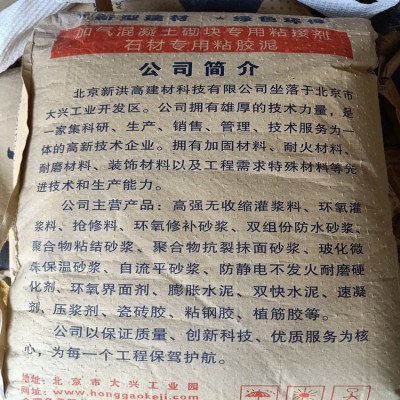 新型建材 绿色环保
加气混凝土砌块专用粘接剂
石材专用粘胶泥
公司简介
北京新洪高建材科技有限公司坐落于北京市
大兴工业开发区。公司拥有雄厚的技术力量，是
一家集科研、生产、销售、管理、技术服务为一
体的高新技术企业。拥有加固材料、耐火材料、
耐磨材料、装饰材料以及工程需求特殊材料等先
进技术和生产能力。
公司主营产品：高强无收缩灌浆料、环氧灌
浆料、抢修料、环氧修补砂浆、双组份防水砂浆、
聚合物粘结砂浆、聚合物抗裂抹面砂浆、玻化微
珠保温砂浆、自流平砂浆、防静电不发火耐磨硬
化剂、环氧界面剂、膨胀水泥、双快水泥、速凝
剂、压浆剂、瓷砖胶、粘钢胶、植筋胶等。
公司以保证质量、创新科技、优质服务为核
心，为每一个工程保驾护航。
地址：北京市大兴工业园
网址：www.honggaokeji.com